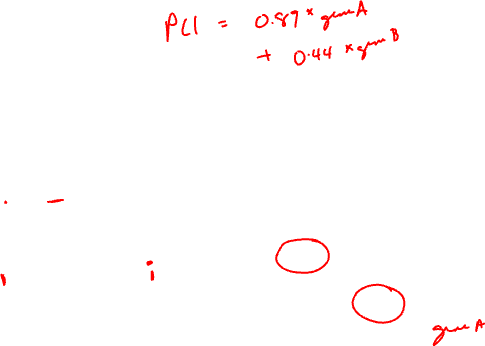 PC1 = 0.89 * gene A
+ 0.44 * gene B
gene A